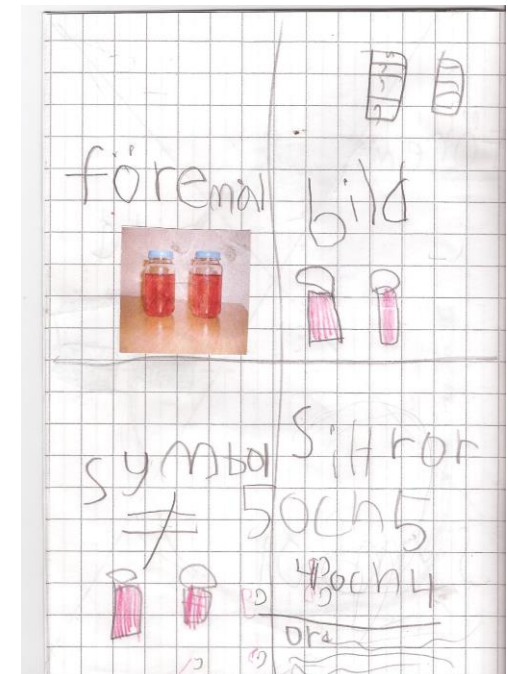 föremål
bild
symbol
≠
Sihror
5och5
4och4
ord